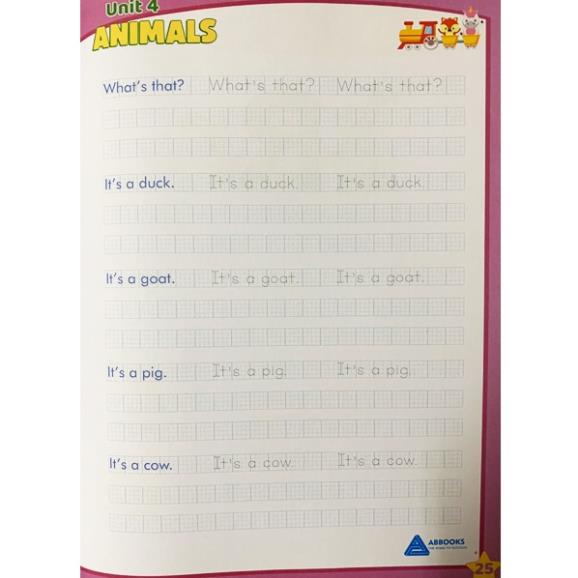 Unit 4
ANIMALS
What's that? What's that? What's that?
It's a duck. It's a duck. It's a duck.
It's a goat. It's a goat. It's a goat.
It's a pig. It's a pig. It's a pig.
It's a cow. It's a cow. It's a cow.
ABBOOKS
25